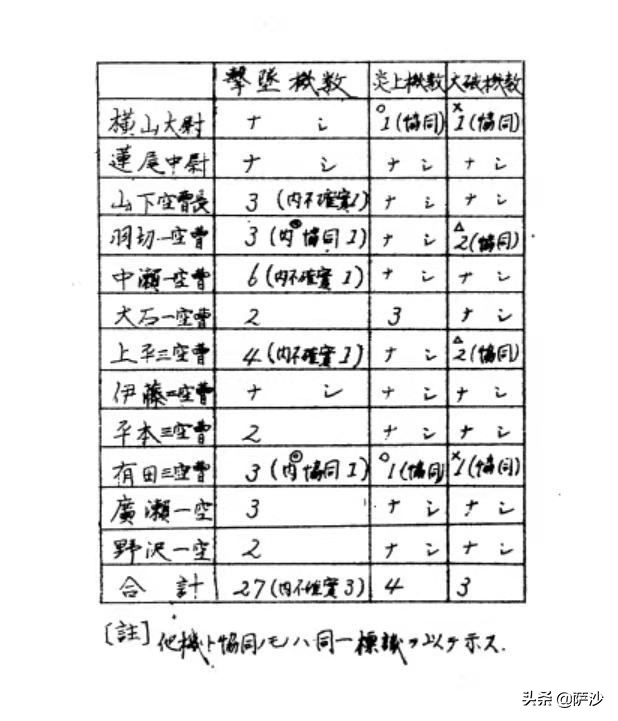 撃墜機数 炎上機数 大破機数
横山大尉 ナシ ○1(協同) ×1(協同)
蓮尾中尉 ナシ ナシ ナシ
山下空曹長 3(内不確実1) ナシ ナシ
羽切一空曹 3(内◎協同1) ナシ △2(協同)
中瀬一空曹 6(内不確実1) ナシ ナシ
大石一空曹 2 3 ナシ
上平二空曹 4(内不確実1) ナシ △2(協同)
伊藤二空曹 ナシ ナシ ナシ
平本三空曹 2 ナシ ナシ
有田三空曹 3(内◎協同1) ○1(協同) ×1(協同)
廣瀬一空 3 ナシ ナシ
野沢一空 2 ナシ ナシ
合計 27(内不確実3) 4 3
[註]他機ト協同ノモノハ同一標識ヲ以テ示ス.
头条@萨沙